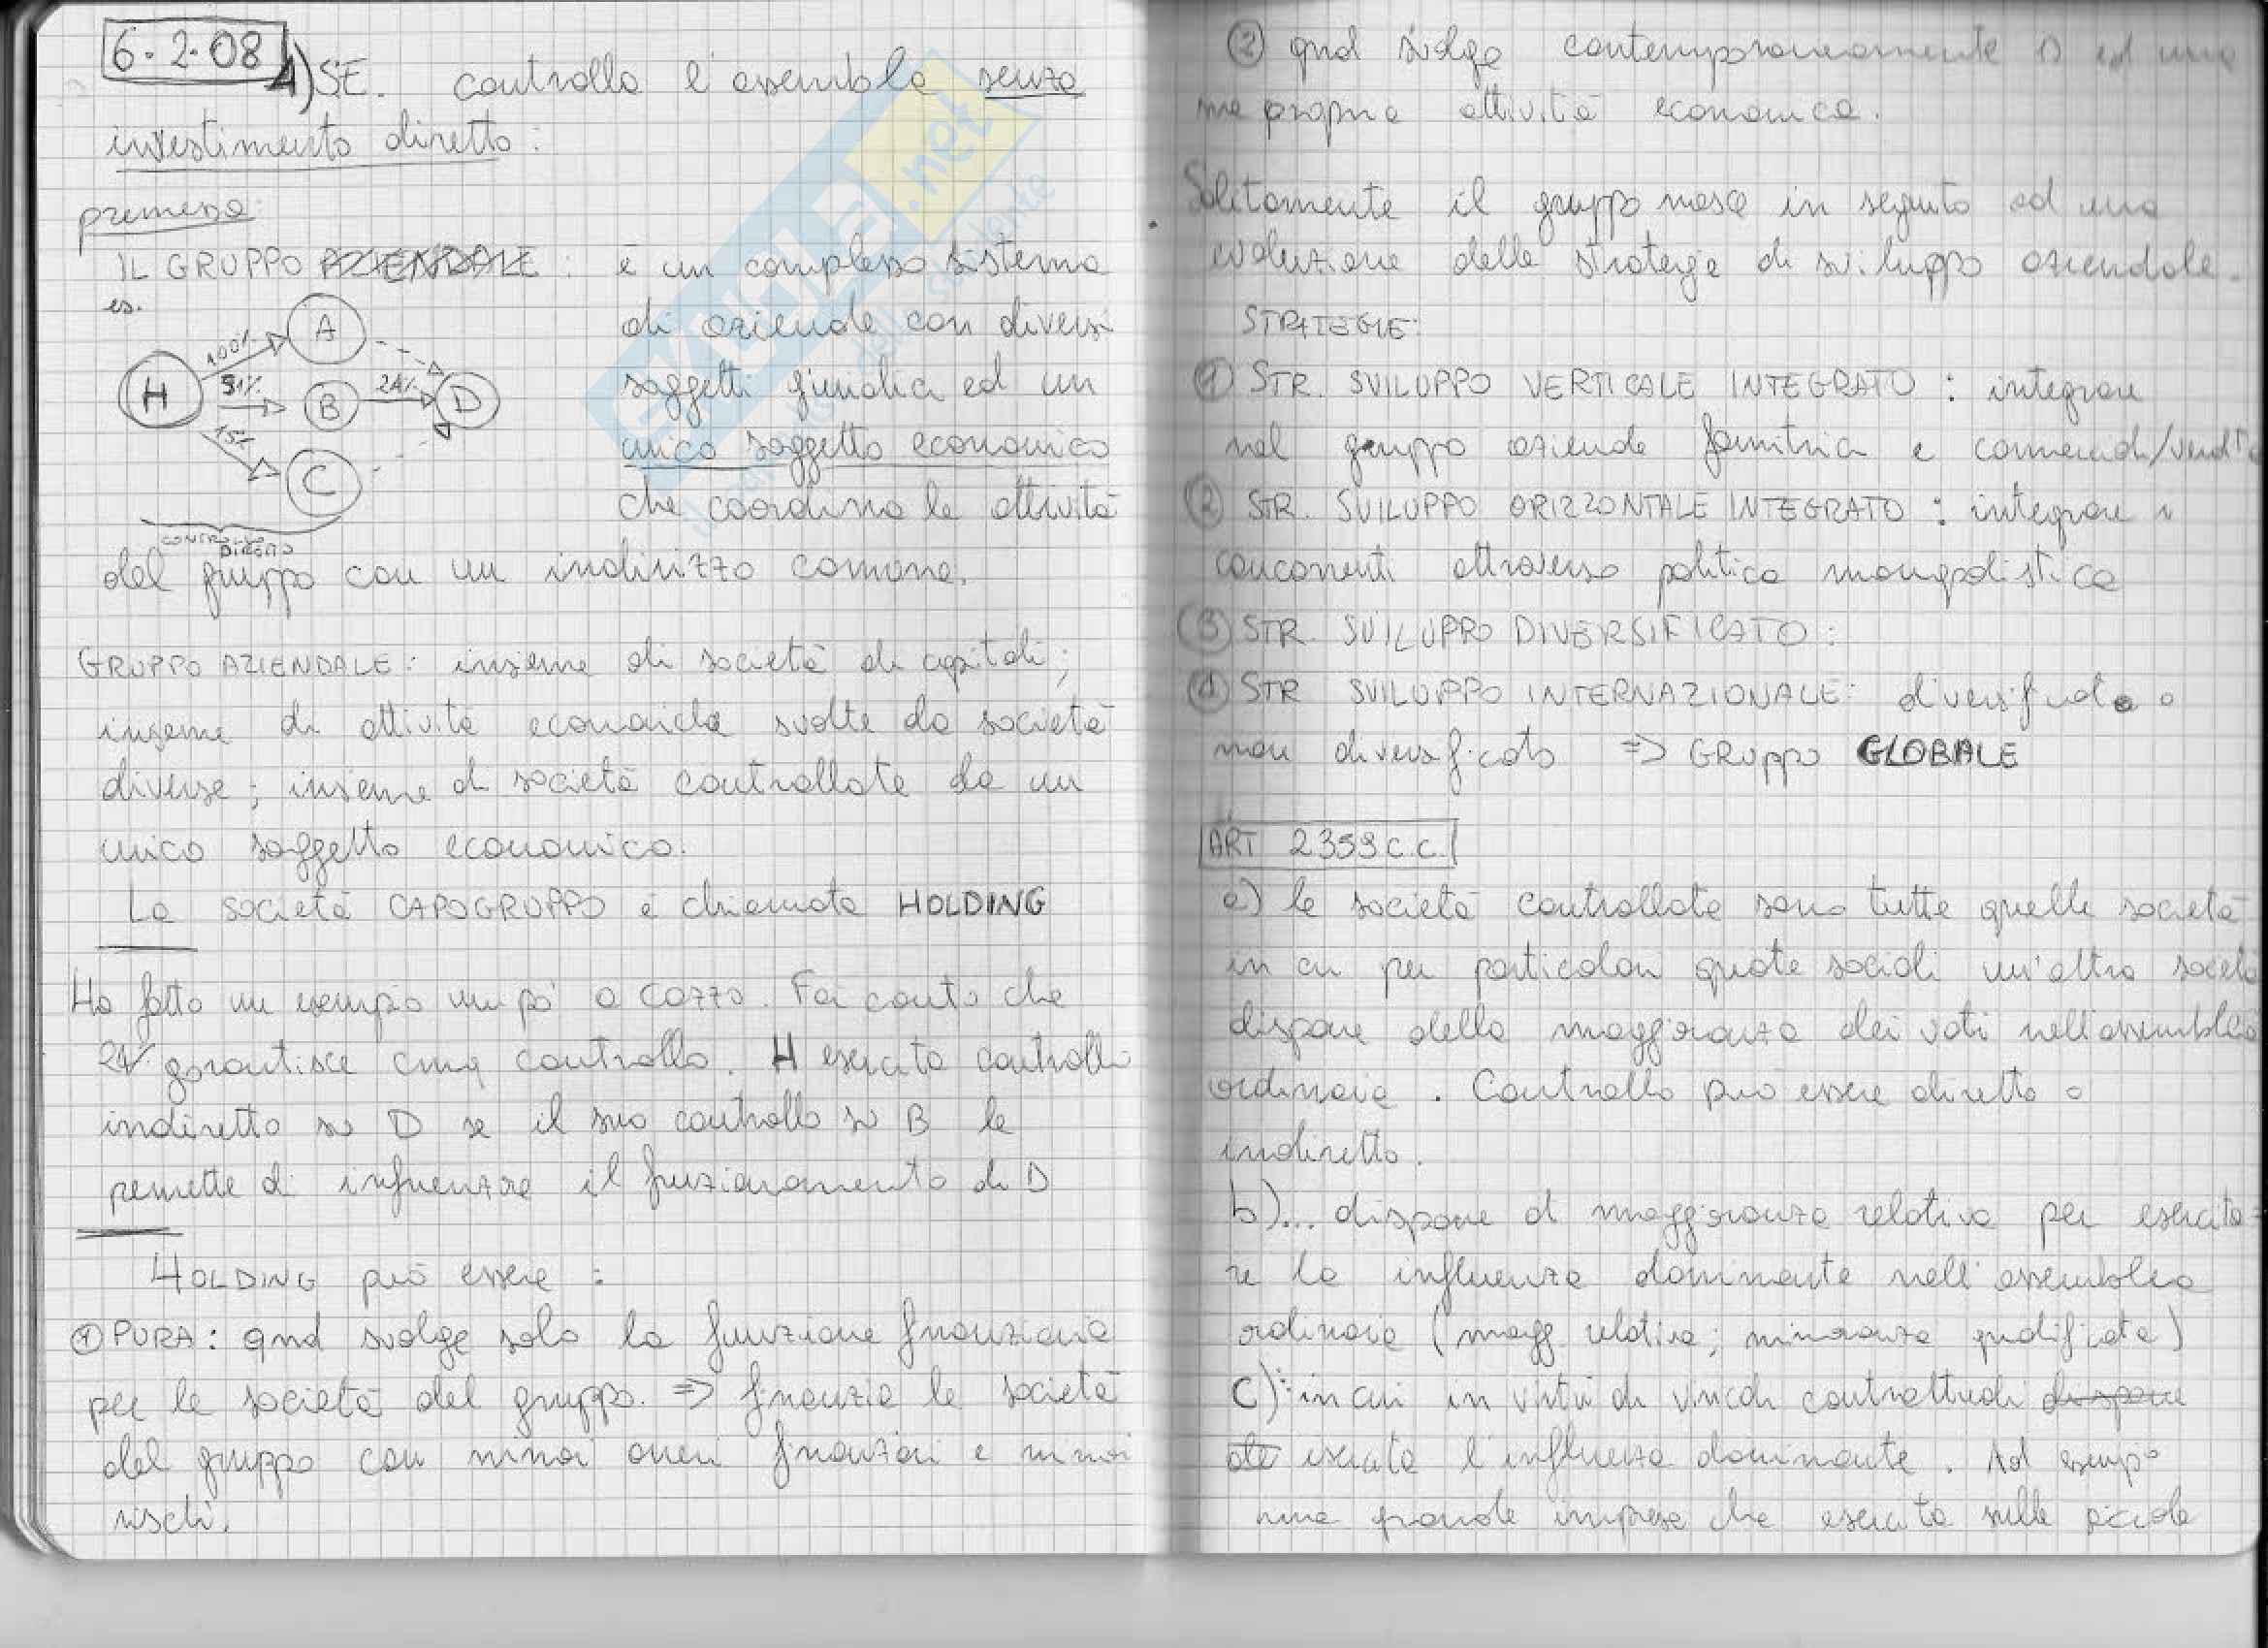 6.2.08
4) S.E. controlla l'assemblea senza
investimento diretto:
premessa:
IL GRUPPO AZIENDALE : è un complesso sistema
es.
di aziende con diversi
soggetti giuridici ed un
unico soggetto economico
che coordina le attività
H
A
B
C
D
100%
51%
15%
24%
CONTROLLO
DIRETTO
del gruppo con un indirizzo comune.
GRUPPO AZIENDALE: insieme di società di capitali;
insieme di attività economiche svolte da società
diverse; insieme di società controllate da un
unico soggetto economico.
La società CAPOGRUPPO è chiamata HOLDING
Ho fatto un esempio un po' a cazzo. Fai conto che
24% garantisce cmq controllo. H esercita controllo
indiretto su D se il suo controllo su B le
permette di influenzare il funzionamento di D
HOLDING può essere :
① PURA: qnd svolge solo la funzione finanziaria
per le società del gruppo. => finanzia le società
del gruppo con minori oneri finanziari e minori
rischi.
② qnd svolge contemporaneamente 1) ed una
sua propria attività economica.
Solitamente il gruppo nasce in seguito ad una
evoluzione delle strategie di sviluppo aziendale.
STRATEGIE:
① STR. SVILUPPO VERTICALE INTEGRATO : integrare
nel gruppo aziende fornitrici e commerciali/vendita
② STR. SVILUPPO ORIZZONTALE INTEGRATO : integrare i
concorrenti attraverso politica monopolistica
③ STR. SVILUPPO DIVERSIFICATO :
④ STR SVILUPPO INTERNAZIONALE: diversificato o
non diversificato => GRUPPO GLOBALE
ART 2359 c.c.
a) le società controllate sono tutte quelle società
in cui per particolari quote sociali un'altra società
dispone della maggioranza dei voti nell'assemblea
ordinaria . Controllo può essere diretto o
indiretto.
b)... dispone di maggioranza relativa per esercita-
re la influenza dominante nell'assemblea
ordinaria (magg relativa; minoranza qualificata)
c): in cui in virtù di vincoli contrattuali dispone
di esercita l'influenza dominante. Ad esempio
una grande impresa che esercita sulle piccole